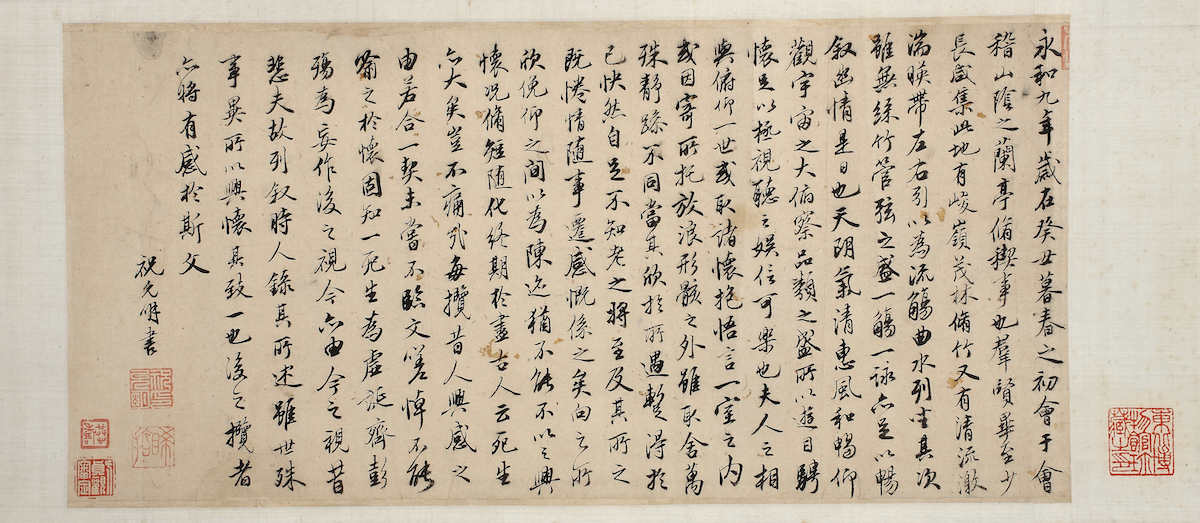 永和九年歲在癸丑暮春之初會于會
稽山陰之蘭亭脩禊事也羣賢畢至少
長咸集此地有峻嶺茂林脩竹又有清流激
湍暎帶左右引以為流觴曲水列坐其次
雖無絲竹管弦之盛一觴一詠亦足以暢
叙幽情是日也天朗氣清惠風和暢仰
觀宇宙之大俯察品類之盛所以遊目騁
懷足以極視聽之娛信可樂也夫人之相
與俯仰一世或取諸懷抱悟言一室之内
或因寄所托放浪形骸之外雖取舍萬
殊靜躁不同當其欣於所遇蹔得於
己快然自足不知老之將至及其所之
既惓情随事遷感慨係之矣向之所
欣俛仰之間以為陳迹猶不能不以之興
懷況脩短随化終期於盡古人云死生
亦大矣豈不痛哉每攬昔人興感之
由若合一契未嘗不臨文嗟悼不能
喻之於懷固知一死生為虛誕齊彭
殤為妄作後之視今亦由今之視昔
悲夫故列叙時人錄其所述雖世殊
事異所以興懷其致一也後之攬者
亦將有感於斯文
祝允明書